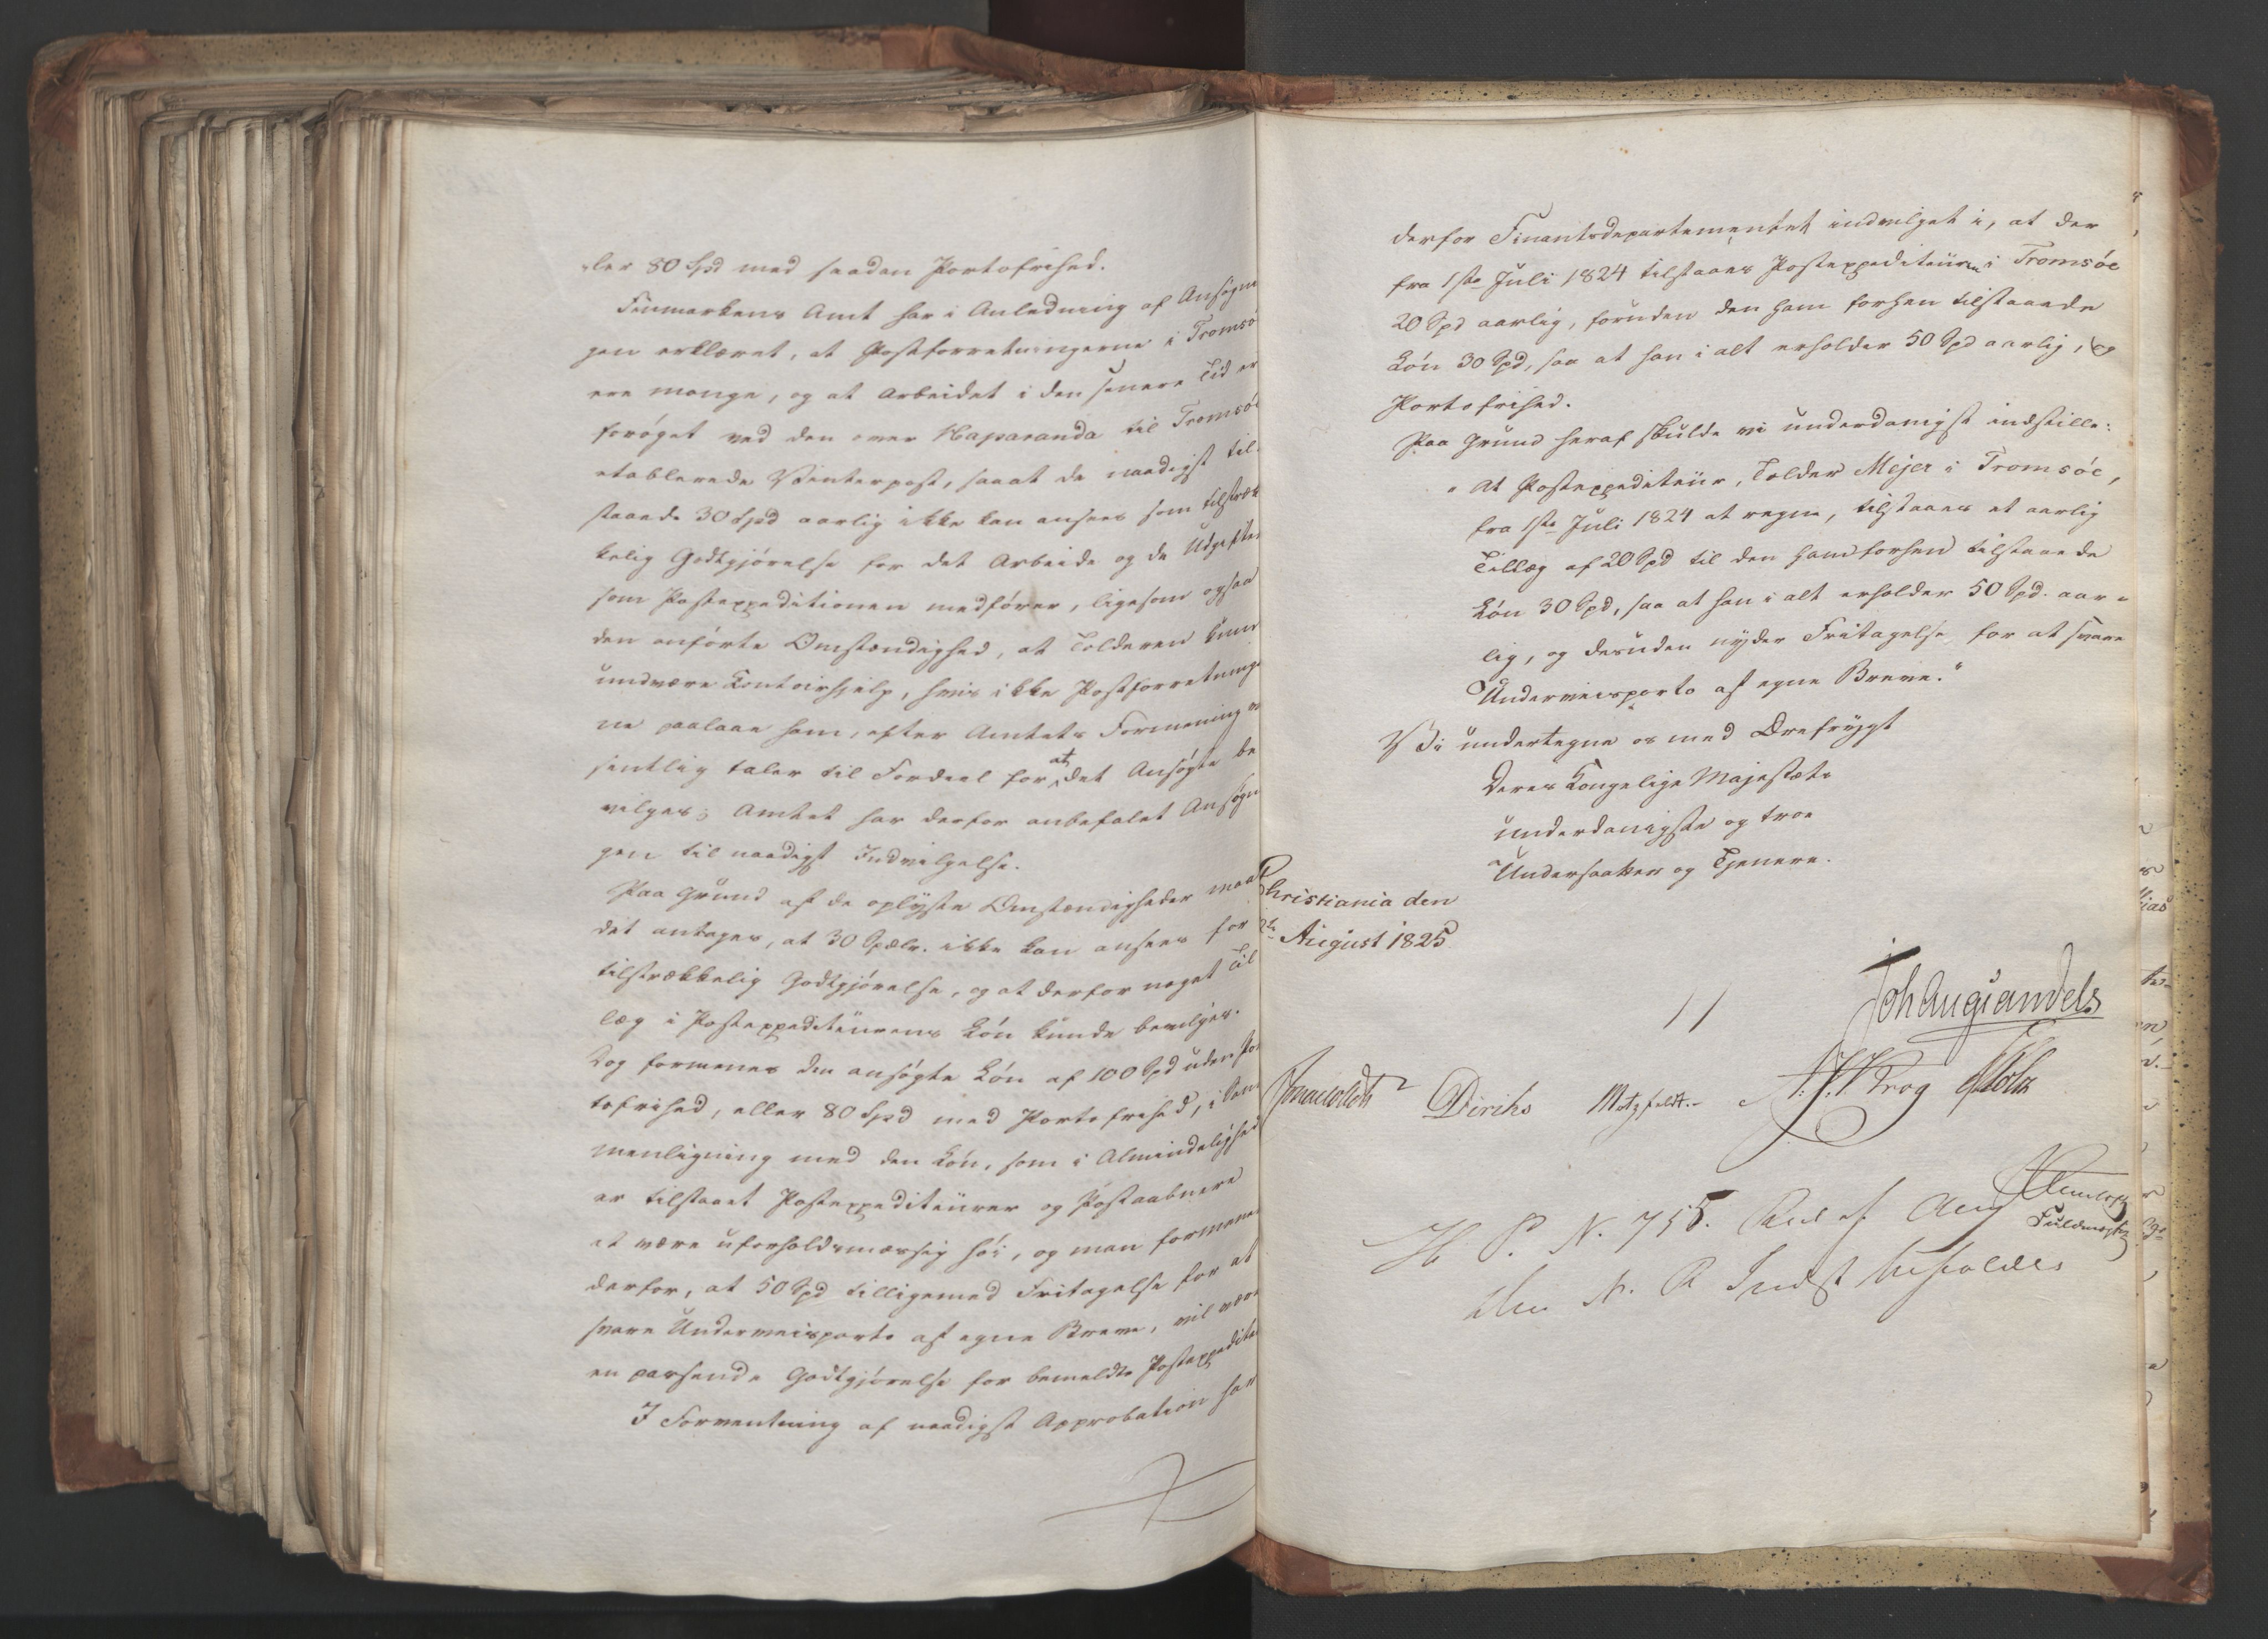 ler 80 Spd med saadan Portofrihed.
Finmarkens Amt har i Anledning af Ansøgnin
gen erklæret, at Postforretningerne i Tromsø
ere mange, og at Arbeidet i den senere Tid er
forøget ved den over Haparanda til Tromsøe
etablerede Vinterpost, saaat de naadigst til-
staaede 30 Spd aarlig ikke kan ansees som tilstræk
kelig Godtgjørelse for det Arbeide og de Udgifter
som Postexpeditionen medfører, ligesom ogsaa
den anførte Omstændighed, at Tolderen kunde
undvære Contoirhjelp, hvis ikke Postforretninger
ne paalaae ham, efter Amtets Formening væ
sentlig taler til Fordeel for at det Ansøgte be
vilges; Amtet har derfor anbefalet Ansøgnin
gen til naadigst Indvilgelse.
Paa Grund af de oplyste Omstændigheder maae
det antages, at 30 Spdlr. ikke kan ansees for
tilstrækkelig Godtgjørelse, og at derfor noget Til
læg i Postexpediteurens Løn kunde bevilges.
Dog formenes den ansøgte Løn af 100 Spd uden Por
tofrihed, eller 80 Spd med Portofrihed, i Sam
menligning med den Løn, som i Almindelighed
er tilstaaet Postexpediteurer og Postaabnere
at være uforholdsmæssig høi, og man formener
derfor, at 50 Spd tilligemed Fritagelse for at
svare Underveisporto af egne Breve, vil være
en passende Godtgjørelse for bemeldte Postexpediteur
I Forventning af naadigst Approbation har
derfor Finantsdepartementet indvilget i, at der
fra 1ste Juli 1824 tilstaaes Postexpediteuren i Tromsøe
20 Spd aarlig, foruden den ham forhen tilstaaede
Løn 30 Spd, saa at han i alt erholder 50 Spd aarlig, og
Portofrihed.
Paa Grund heraf skulde vi underdanigst indstille:
"At Postexpediteur, Tolder Mejer i Tromsøe,
fra 1ste Juli 1824 at regne, tilstaaes et aarlig
Tillæg af 20 Spd til den ham forhen tilstaaede
Løn 30 Spd, saa at han i alt erholder 50 Spd. aar-
lig, og desuden nyder Fritagelse for at svare
Underveisporto af egne Breve."
Vi undertegne os med Ærefrygt
Deres Kongelige Majestæts
underdanigste og troe
Undersaatter og Tjenere.
Christiania den
August 1825
Joh Aug Sandels
Diriks Motzfeldt. Krog Holst
Fuldmægtig
H. P. N. 755. Res af Aug
N. R. Indst bifaldes